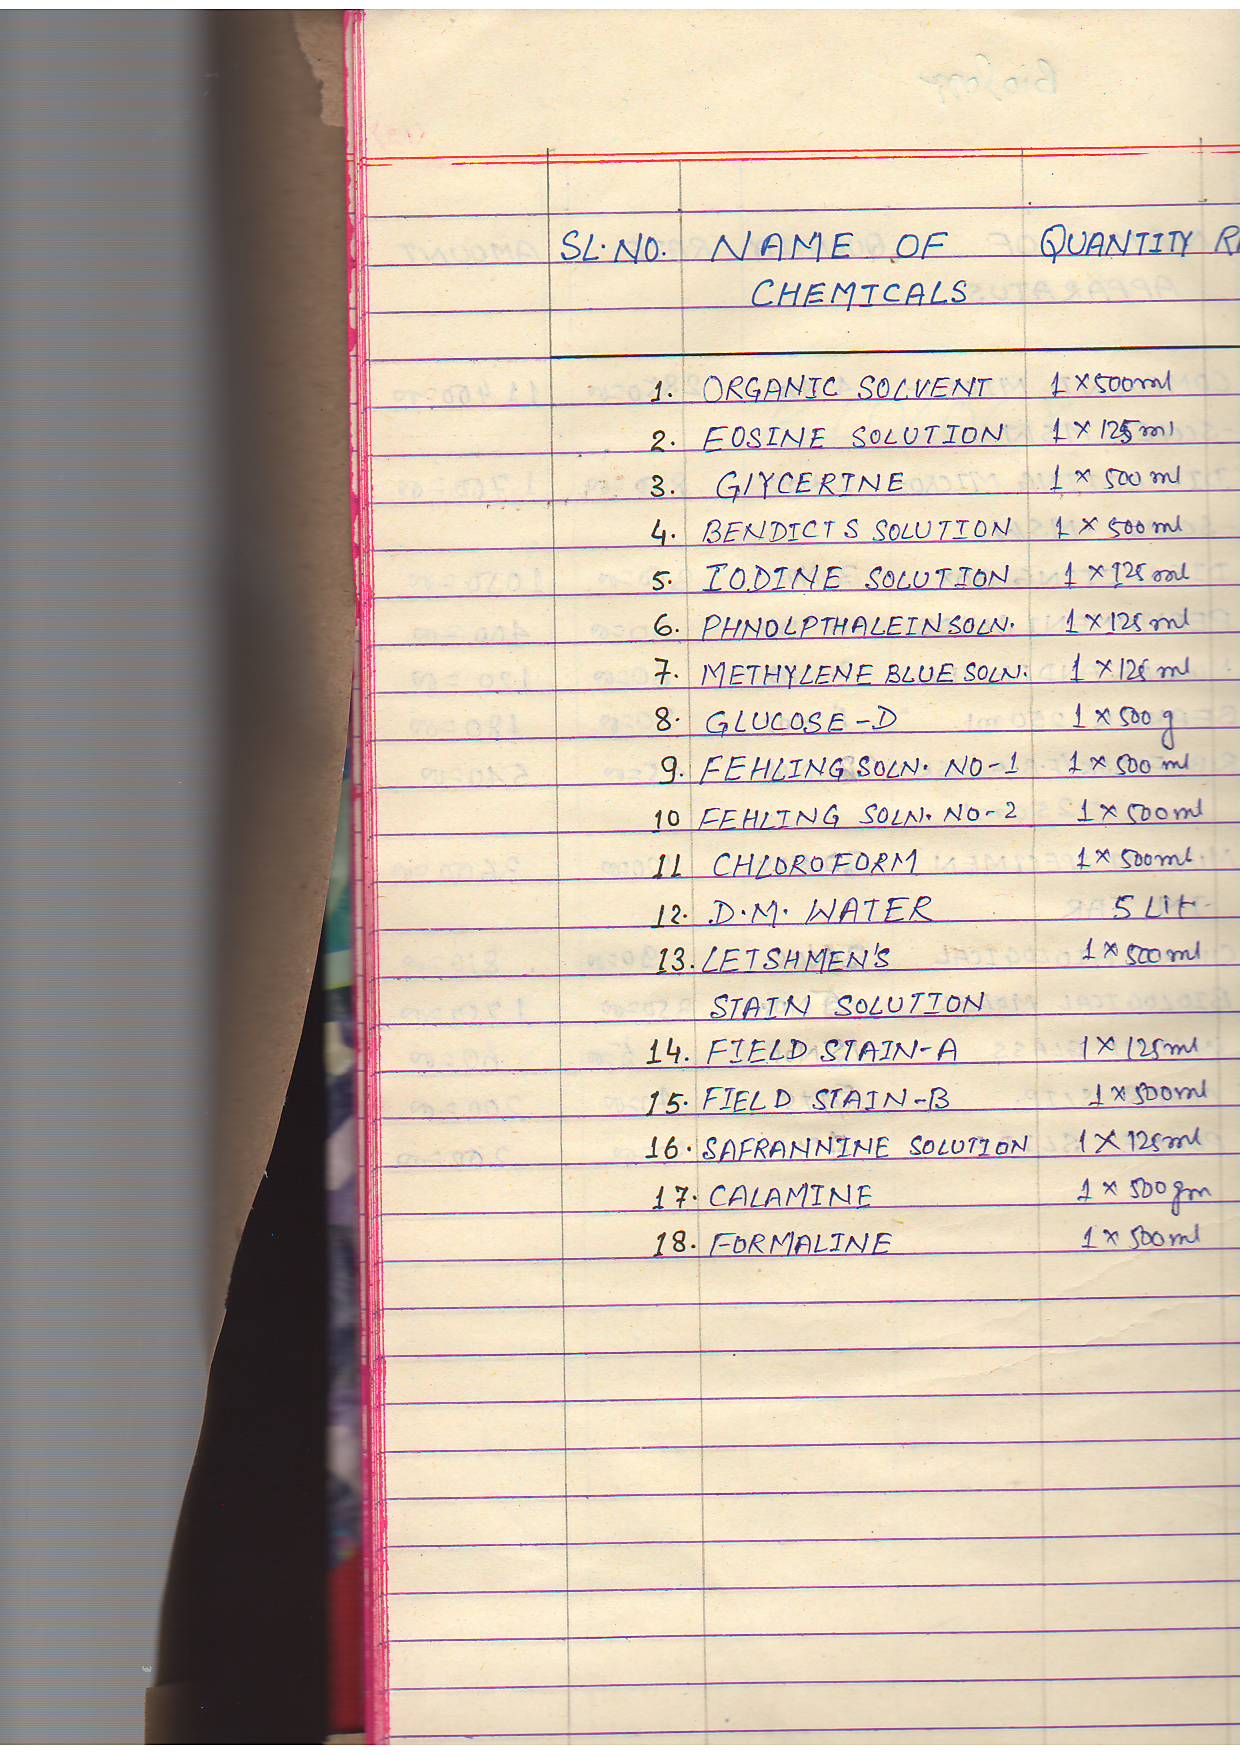 SL.NO. NAME OF QUANTITY
CHEMICALS
1. ORGANIC SOLVENT 1 x 500ml
2. EOSINE SOLUTION 1 x 125ml
3. GLYCERINE 1 x 500 ml
4. BENDICTS SOLUTION 1 x 500ml
5. IODINE SOLUTION 1 x 125 ml
6. PHNOLPTHALEIN SOLN. 1 x 125 ml
7. METHYLENE BLUE SOLN. 1 x 125 ml
8. GLUCOSE-D 1 x 500 g
9. FEHLING SOLN. NO-1 1 x 500 ml
10 FEHLING SOLN. NO-2 1 x 500ml
11 CHLOROFORM 1 x 500ml
12. D.M. WATER 5 Lit.
13. LEISHMEN'S 1 x 500ml
STAIN SOLUTION
14. FIELD STAIN-A 1 x 125ml
15. FIELD STAIN-B 1 x 500ml
16. SAFRANNINE SOLUTION 1 x 125ml
17. CALAMINE 1 x 500gm
18. FORMALINE 1 x 500ml